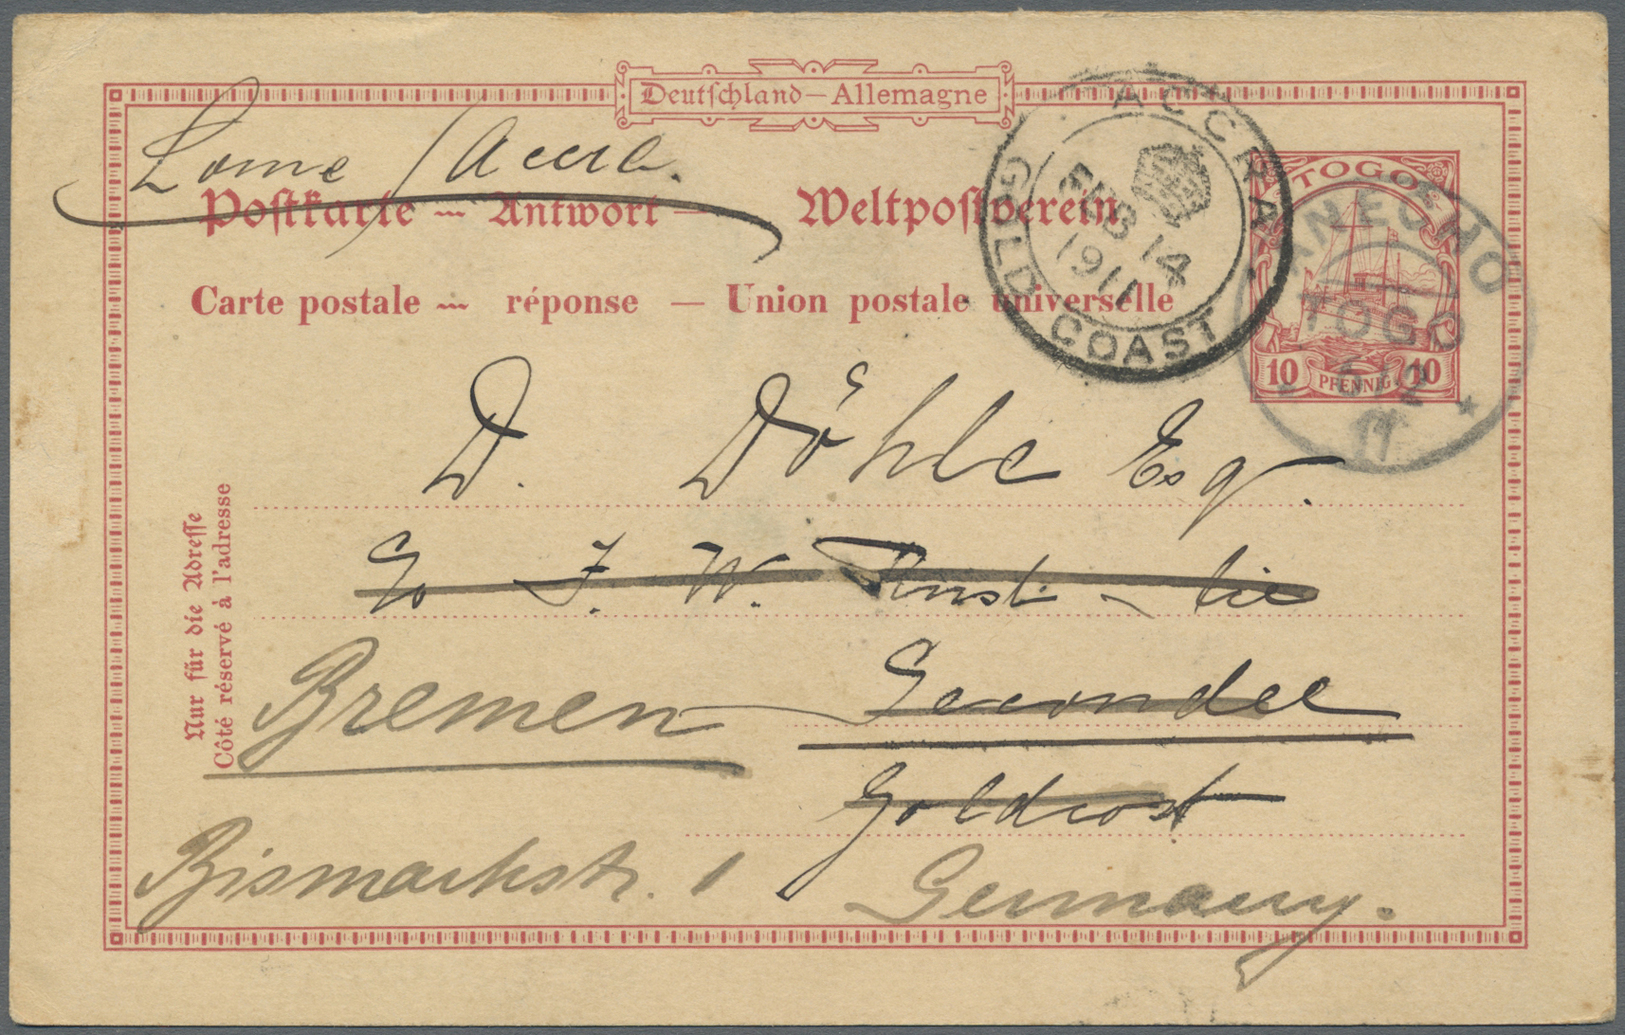 Deutschland – Allemagne
Lome / Accra.
Postkarte – Antwort – Weltpostverein
Carte postale – réponse – Union postale universelle
ACCRA
FEB 14
1911
GOLD COAST
TOGO
10 PFENNIG 10
ANECHO
TOGO
11
D. Döhle Esq.
c/o F. W.
Secondee
Goldcost
Bremen
Bismarkstr. 1
Germany.
Nur für die Adresse
Côté réservé à l'adresse